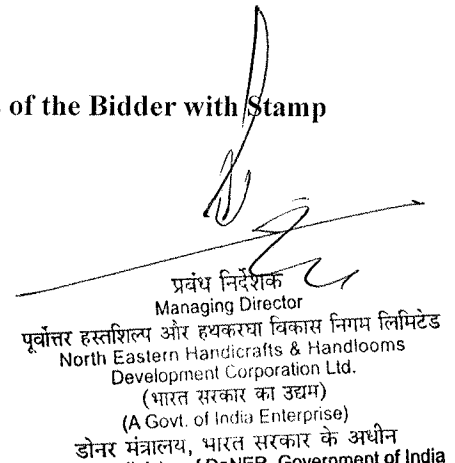 of the Bidder with Stamp
प्रबंध निर्देशक
Managing Director
पूर्वोत्तर हस्तशिल्प और हथकरघा विकास निगम लिमिटेड
North Eastern Handicrafts & Handlooms
Development Corporation Ltd.
(भारत सरकार का उद्यम)
(A Govt. of India Enterprise)
डोनर मंत्रालय, भारत सरकार के अधीन
of DoNER, Government of India